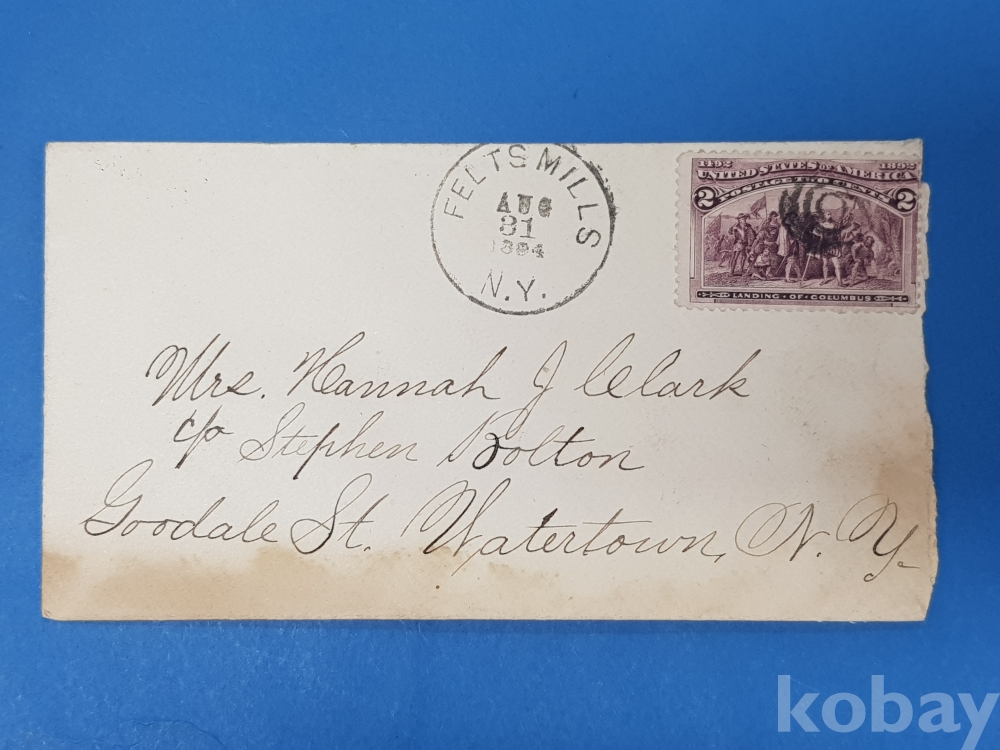 FELTS MILLS
AUG
31
1894
N.Y.
1492 1892
UNITED STATES OF AMERICA
2 POSTAGE TWO CENTS 2
LANDING · OF · COLUMBUS
Mrs. Hannah J Clark
c/o Stephen Bolton
Goodale St. Watertown, N. Y.
kobay